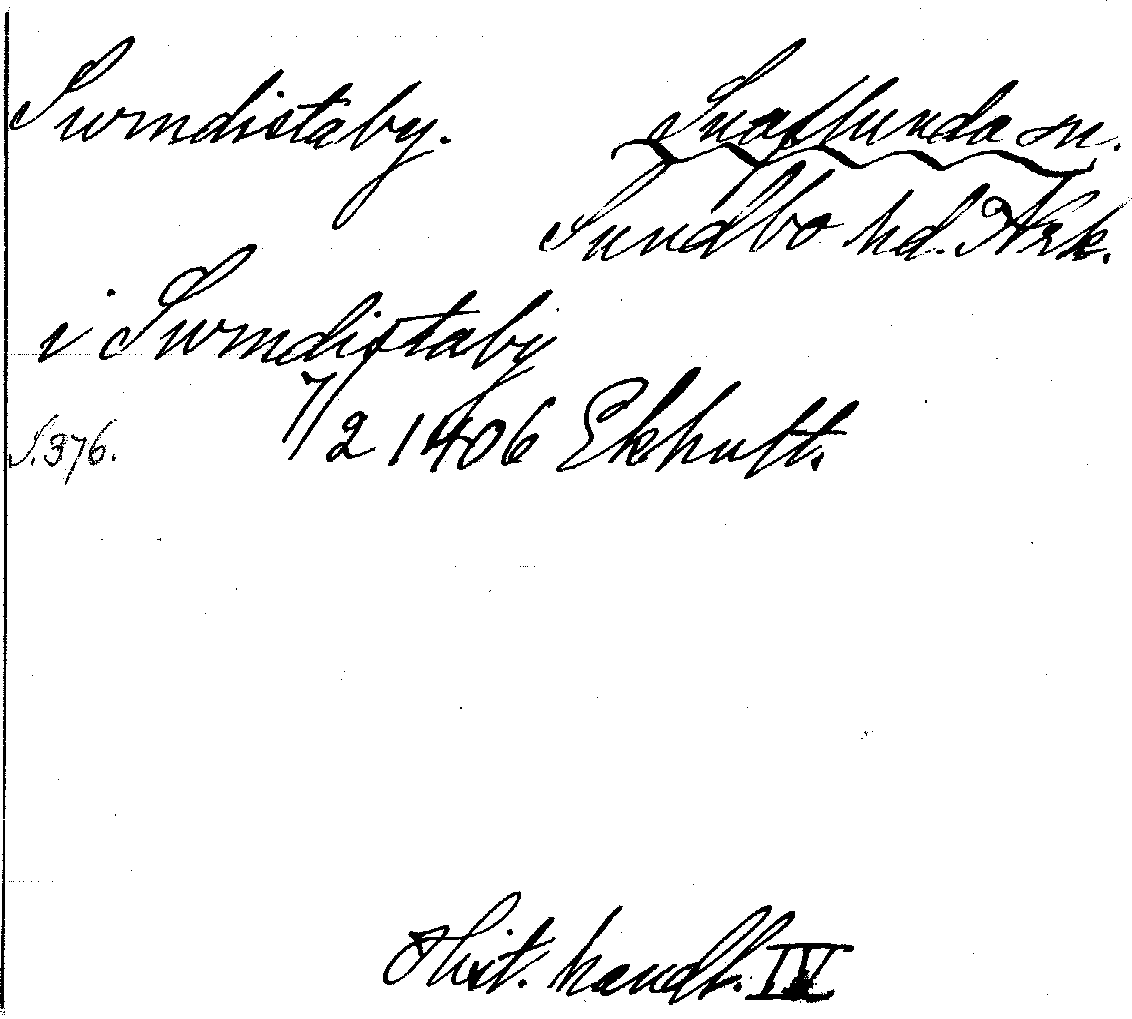 Swmdistaby. Snaflunda sn.
Sundbo hd. Nrk.
i Swmdistaby
S. 376. 7/2 1406 Ekhult.
Hist. handl. IV